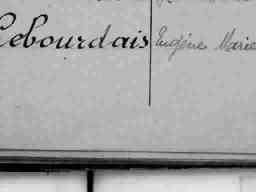 Lebourdais Eugène Marie